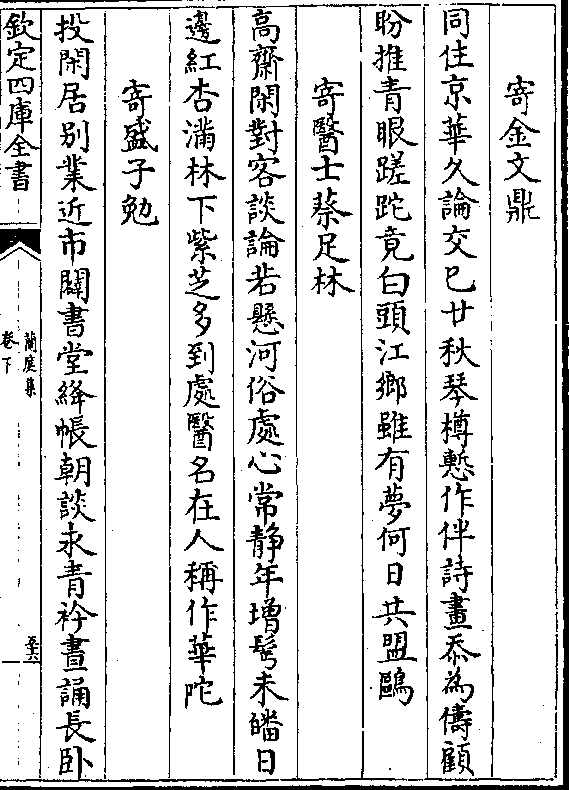 寄金文鼎
同住京華久論交已廿秋琴樽慙作伴詩畫忝為儔顧
盼推青眼蹉跎竟白頭江鄉雖有夢何日共盟鷗
寄醫士蔡足林
高齋閑對客談論若懸河俗處心常靜年增髩未皤日
邊紅杏滿林下紫芝多到處醫名在人稱作華陀
寄盛子勉
投閑居別業近市闢書堂絳帳朝談永青衿晝誦長卧
欽定四庫全書
蘭庭集
卷下